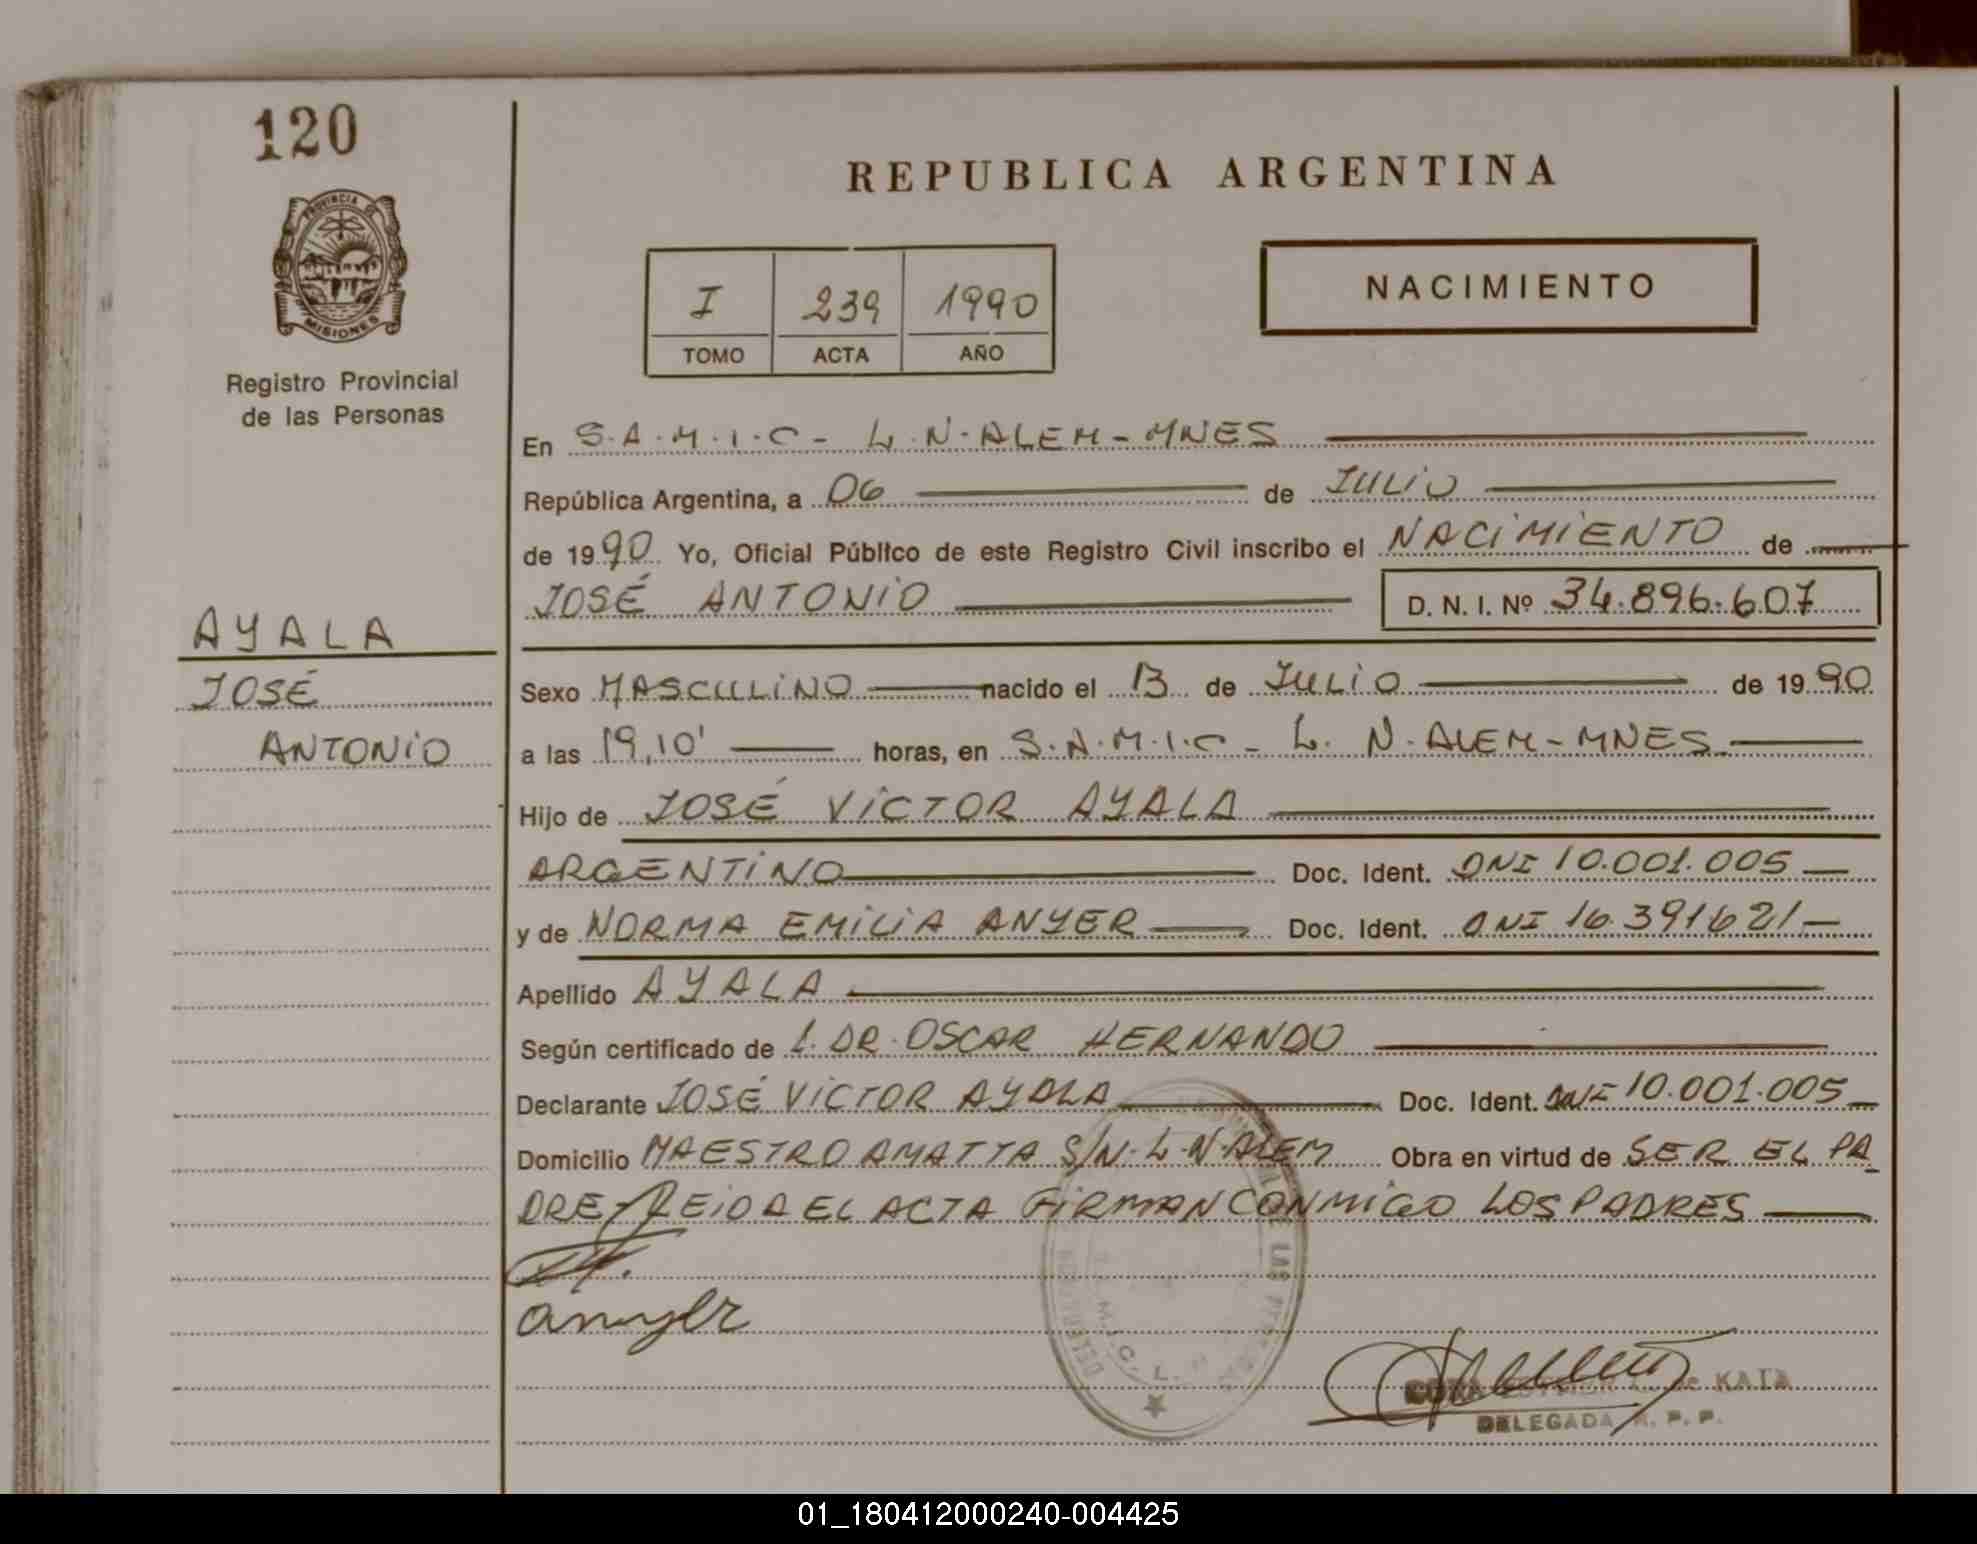 120
PROVINCIA DE
MISIONES
Registro Provincial
de las Personas
AYALA
JOSÉ
ANTONIO
REPUBLICA ARGENTINA
I 239 1990
TOMO ACTA AÑO
NACIMIENTO
En S.A.M.I.C- L.N.ALEM-MNES
República Argentina, a 06 de JULIO
de 1990 Yo, Oficial Público de este Registro Civil inscribo el NACIMIENTO de
JOSÉ ANTONIO D. N. I. Nº 34.896.607
Sexo MASCULINO nacido el 13 de JULIO de 1990
a las 19,10' horas, en S.A.M.I.C- L. N.ALEM-MNES
Hijo de JOSÉ VICTOR AYALA
ARGENTINO Doc. Ident. DNI 10.001.005
y de NORMA EMILIA ANYER Doc. Ident. DNI 16.391.621
Apellido AYALA
Según certificado de DR. OSCAR HERNANDO
Declarante JOSÉ VICTOR AYALA Doc. Ident. DNI 10.001.005
Domicilio MAESTRO AMATTA S/N.L.N.ALEM Obra en virtud de SER EL PA
DRE LEIDA EL ACTA FIRMAN CONMIGO LOS PADRES
anyer
LAS
S.A.M.I.C. L.
de KATA
DELEGADA R. P. P.
01_180412000240-004425